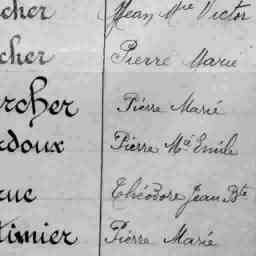 cher Jean Mie Victor
cher Pierre Marie
rcher Pierre Marie
rdoux Pierre Mie Emile
rue Théodore Jean Bte
timier Pierre Marie